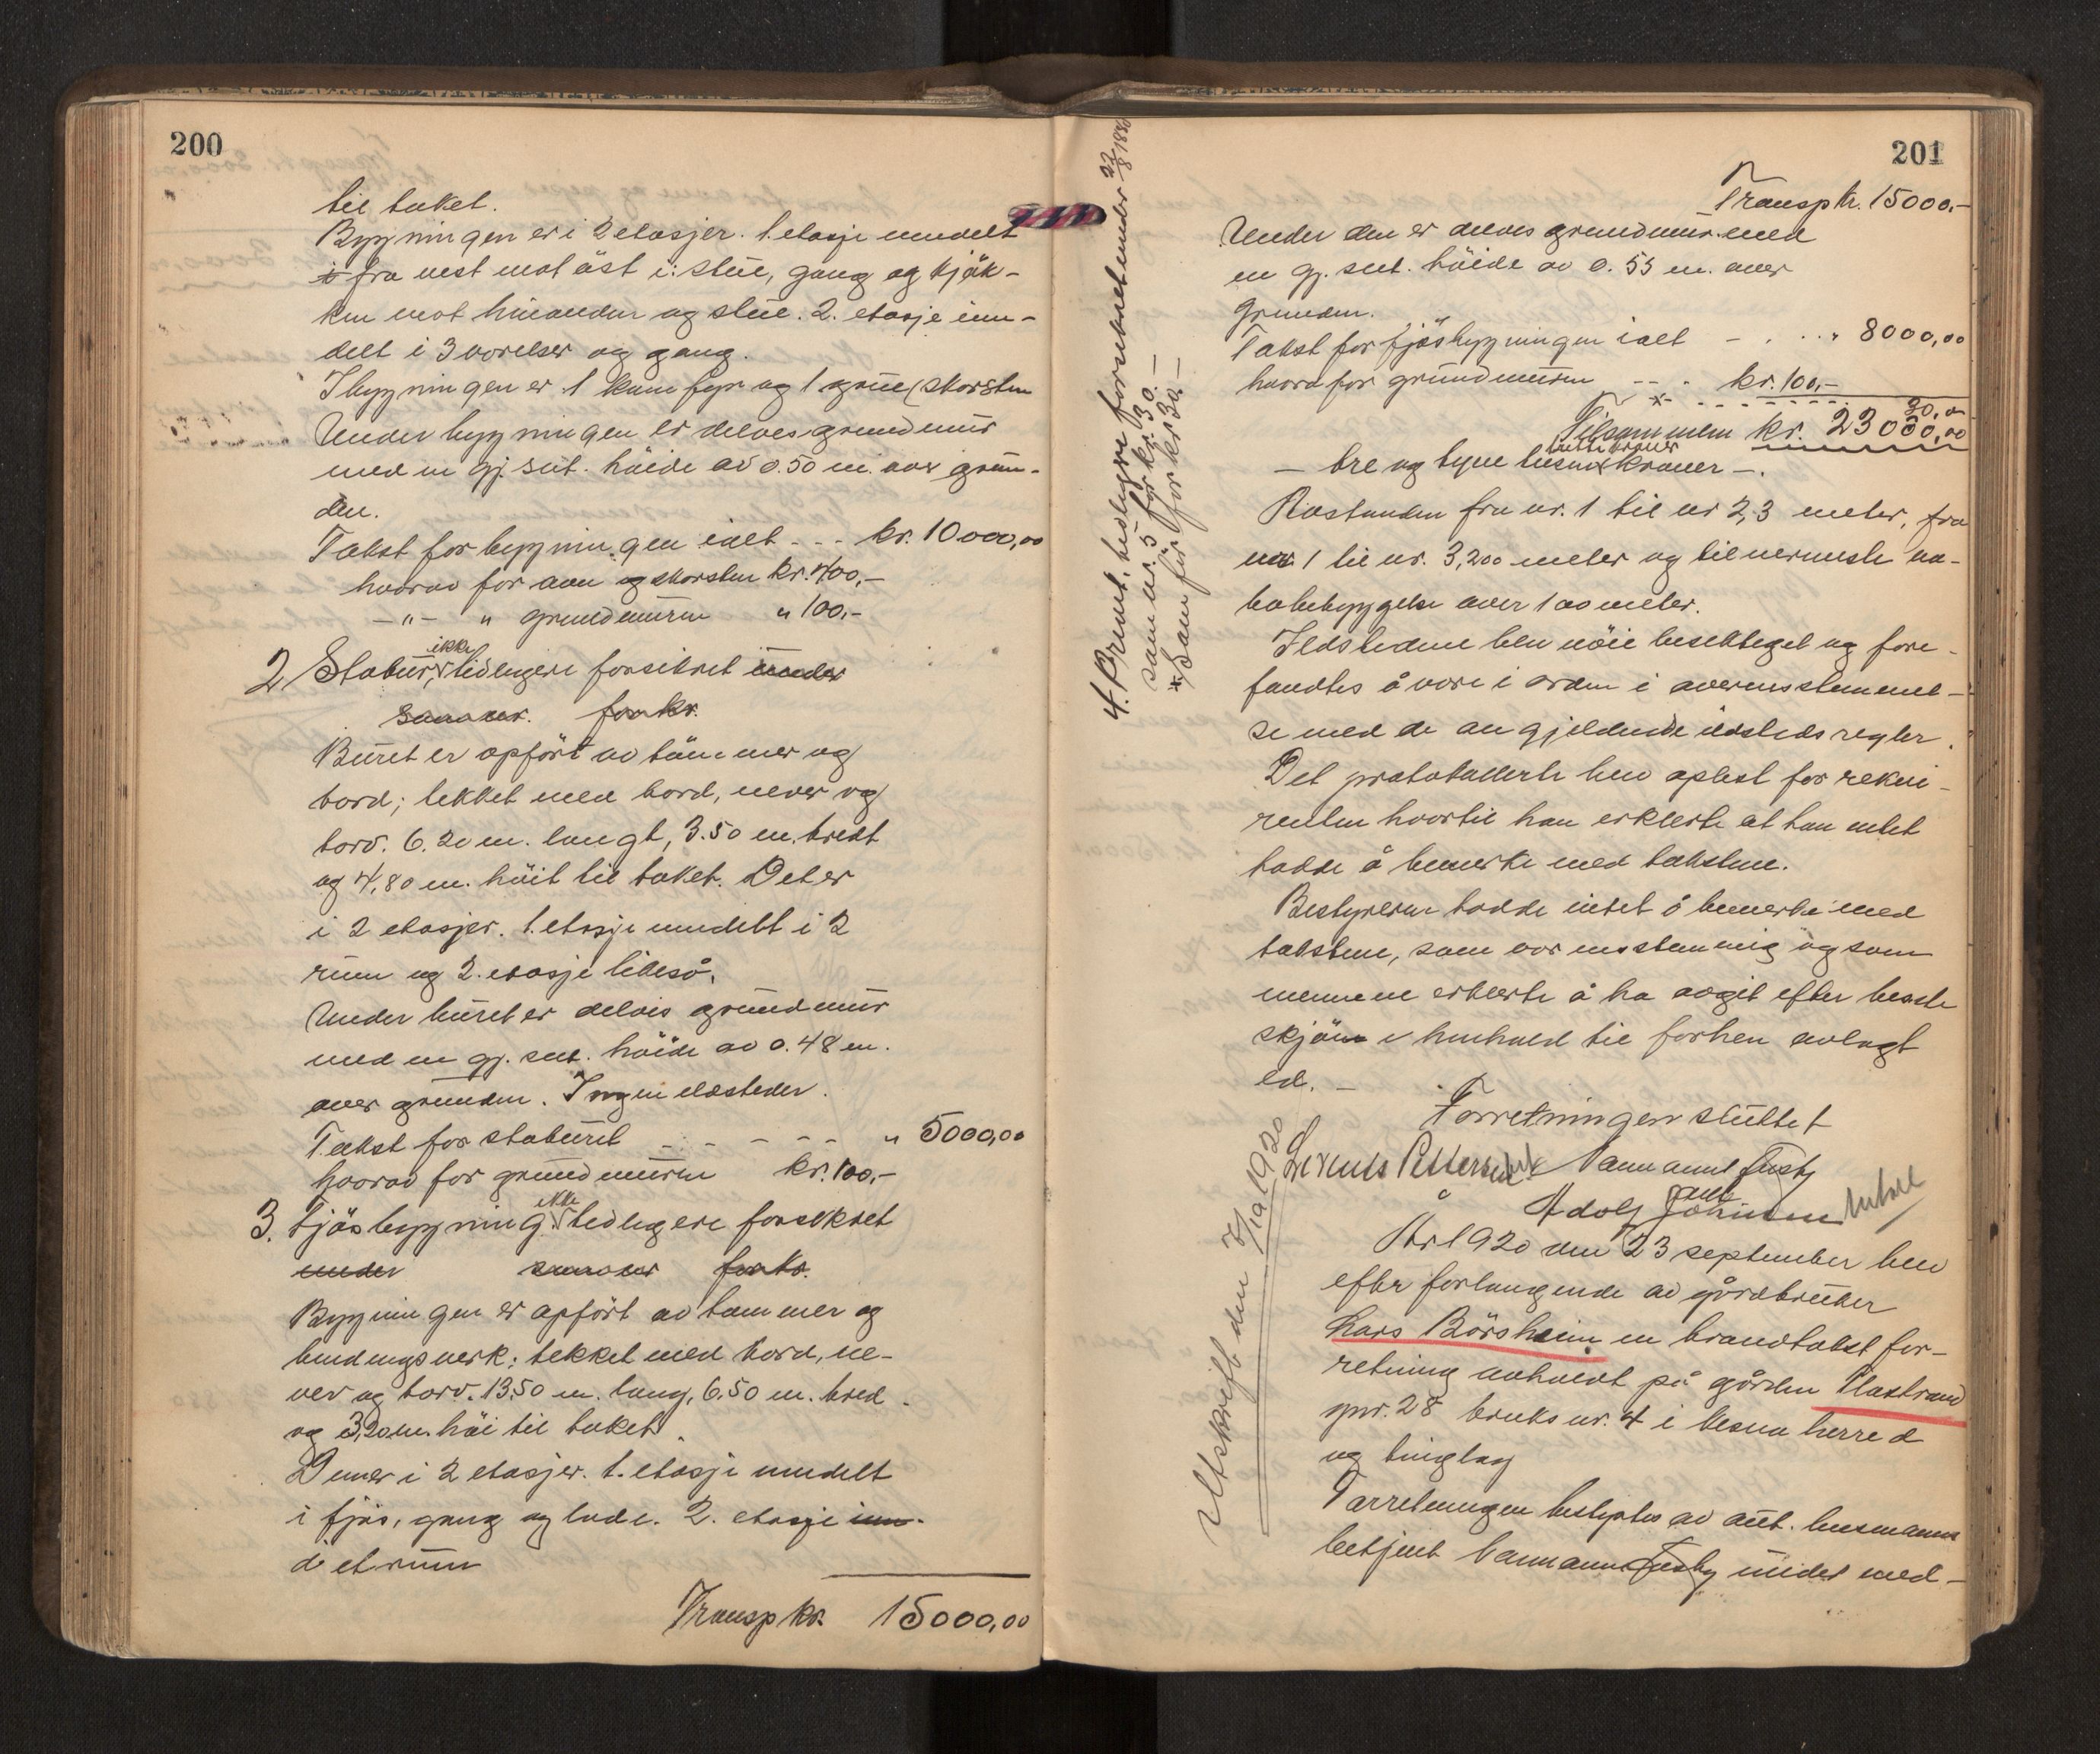 200
til taket.
Bygningen er i 2 etasjer. 1. etasje inndelt
i fra vest mot öst i: stue, gang og kjök-
ken mot hinanden og stue. 2. etasje inn-
delt i 3 værelser og gang.
I bygningen er 1 kamfyr og 1 grue (skorsten
Under bygningen er delves grundmur
med en gj. snt. höide av 0.50 m. over grun-
den.
Takst for bygningen ialt - - - kr. 10.000,00
hvorav for ovn og skorsten kr. 400,-
-"- " grundmuren " 100,-
2 Stabur, ikke tidligere forsikret under
som nr. for kr.
Buret er opfört av tömmer og
bord; tekket med bord, never og
torv. 6.20 m. langt, 3.50 m. bredt
og 4,80 m. höit til taket. Det er
i 2 etasjer. 1. etasje inndelt i 2
rum og 2. etasje likeså.
Under buret er delvis grundmur
med en gj. snt. höide av 0.48 m.
over grunden. Ingen ildsteder.
Takst for staburet - - - - - " 5000,00
hvorav for grundmuren kr. 100,-
3. Fjösbygning. ikke tidligere forsikret
under som nr for kr.
Bygningen er opfört av tømmer og
bindingsverk; tekket med bord, ne-
ver og torv. 13.50 m. lang, 6.50 m. bred
og 3,20 m. höi til taket.
Den er i 2 etasjer. 1. etasje inndelt
i fjös, gang og lade. 2. etasje inn-
d et rum
Transp kr. 15000,00
201
Transp kr. 15000,-
Under den er delves grundmur med
en gj. snt. höide av 0.55 m. over
grunden.
Takst for fjösbygningen ialt - . . . " 8000,00
hvorav for grundmuren - - . kr. 100,-
* - - - - - - - 30,00
Tilsammen kr. 23030,00
tretti kroner
- tre og tyve tusen kroner -.
Avstanden fra nr. 1 til nr 2, 3 meter, fra
nr. 1 til nr. 3, 200 meter og til nermeste na-
bobebyggelse over 100 meter.
Ildstedene blev nöie besiktiget og fore-
fandtes å være i orden i overensstemmel-
se med de angjeldende ildstedsregler.
Det protokollerte blev oplest for rekvi-
renten hvortil han erklerte at han intet
hadde å bemerke med taksten.
Bestyreren hadde intet å bemerke med
takstene, som var enstemmig og som
mennene erklerte å ha avgit efter beste
skjön i henhold til forhen avlagt
ed. -
Forretningen sluttet
Lorents Pettersen Normann Fusby
Adolf Johnsen
År 1920 den 23 september blev
efter forlangende av gårdbruker
Lars Börsheim en brandtakst for-
retning avholdt på gården Ulastrand
gnr. 28 bruks nr. 4 i Vesna herred
og tinglag
Forretningen bestyrtes av aut. lensmanns
betjent Normann Fusby undet med-
4. Brendt, tidligere forsikret under 22/8 1880
som nr. 5 for kr. 30.-
* Som för for kr 30.-
Utskrift den 7/10 1920